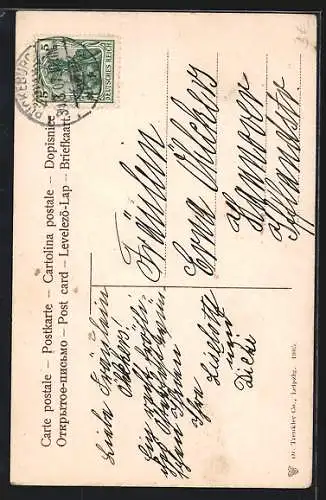 Carte postale – Postkarte – Cartolina postale – Dopisnice
Открытое письмо – Post card – Levelező-Lap – Briefkaart
5 5
DEUTSCHES REICH
Fräulein
Erna Ölckers
Hannover
Liebes Fräulein
Ölckers!
Ein recht fröhli-
ches
Ihnen
Liesbeth
und
Dicki
Dr. Trenkler Co., Leipzig. 1905.